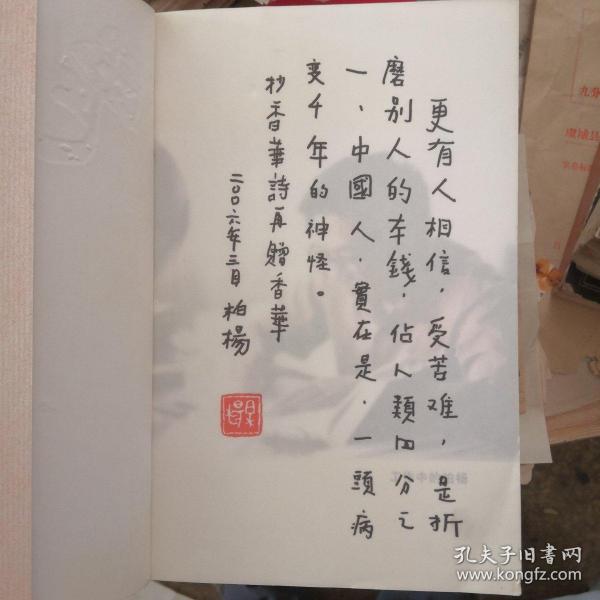 更有人相信，受苦难，是折
磨别人的本錢，佔人類四分之
一、中國人，實在是，一頭病
变千年的神怪。
抄香華詩再贈香華
二〇〇六年三月 柏楊
工作中的柏杨
九分
孔夫子旧书网
www.kongfz.com